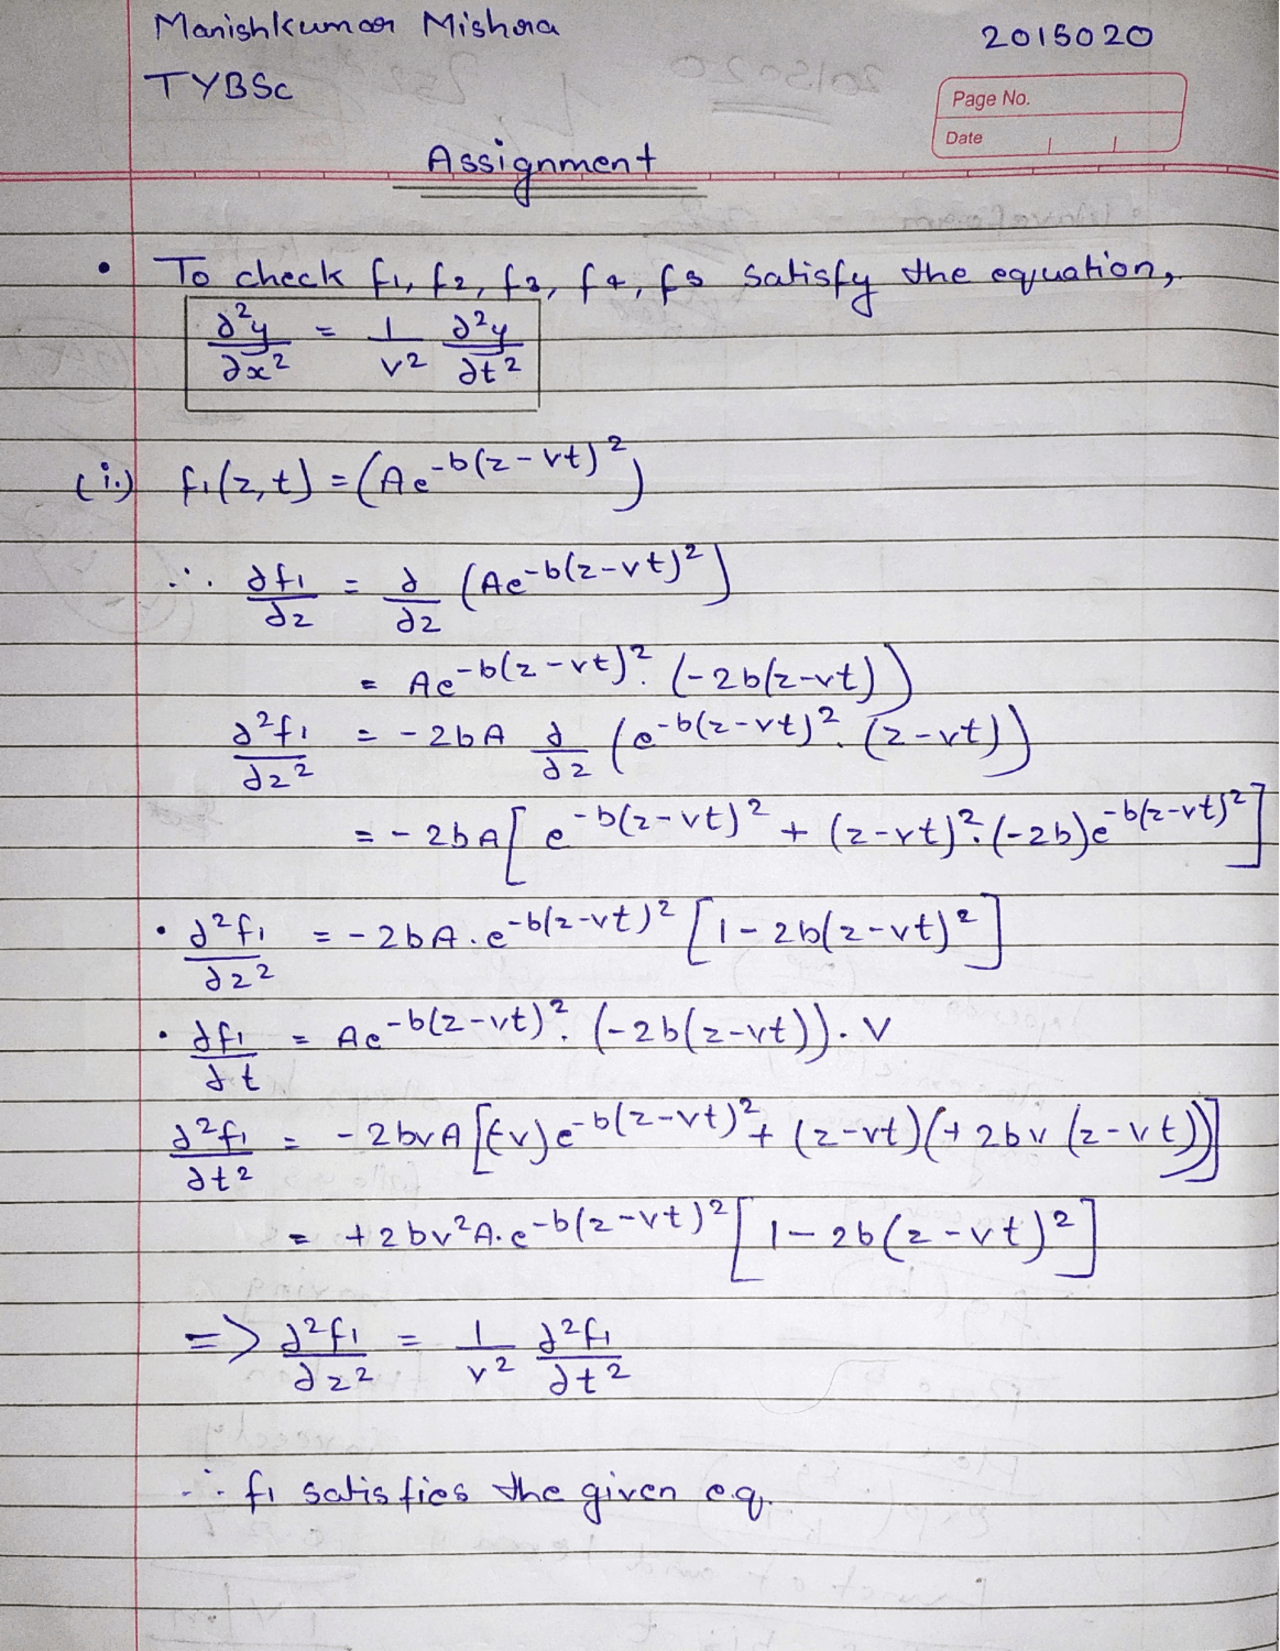 Manishkumar Mishra 2015020
TYBSc
Page No.
Date
Assignment
• To check f1, f2, f3, f4, f5 satisfy the equation,
∂²y/∂x² = 1/v² ∂²y/∂t²
(i.) f1(z,t) = (Ae^-b(z-vt)²)
∴ ∂f1/∂z = ∂/∂z (Ae^-b(z-vt)²)
= Ae^-b(z-vt)². (-2b(z-vt))
∂²f1/∂z² = -2bA ∂/∂z (e^-b(z-vt)². (z-vt))
= -2bA[e^-b(z-vt)² + (z-vt)².(-2b)e^-b(z-vt)²]
• ∂²f1/∂z² = -2bA.e^-b(z-vt)² [1-2b(z-vt)²]
• ∂f1/∂t = Ae^-b(z-vt)². (-2b(z-vt)).v
∂²f1/∂t² = -2bvA[(-v)e^-b(z-vt)² + (z-vt)(+2bv(z-vt))]
= +2bv²A.e^-b(z-vt)² [1-2b(z-vt)²]
=> ∂²f1/∂z² = 1/v² ∂²f1/∂t²
∴ f1 satisfies the given eq.